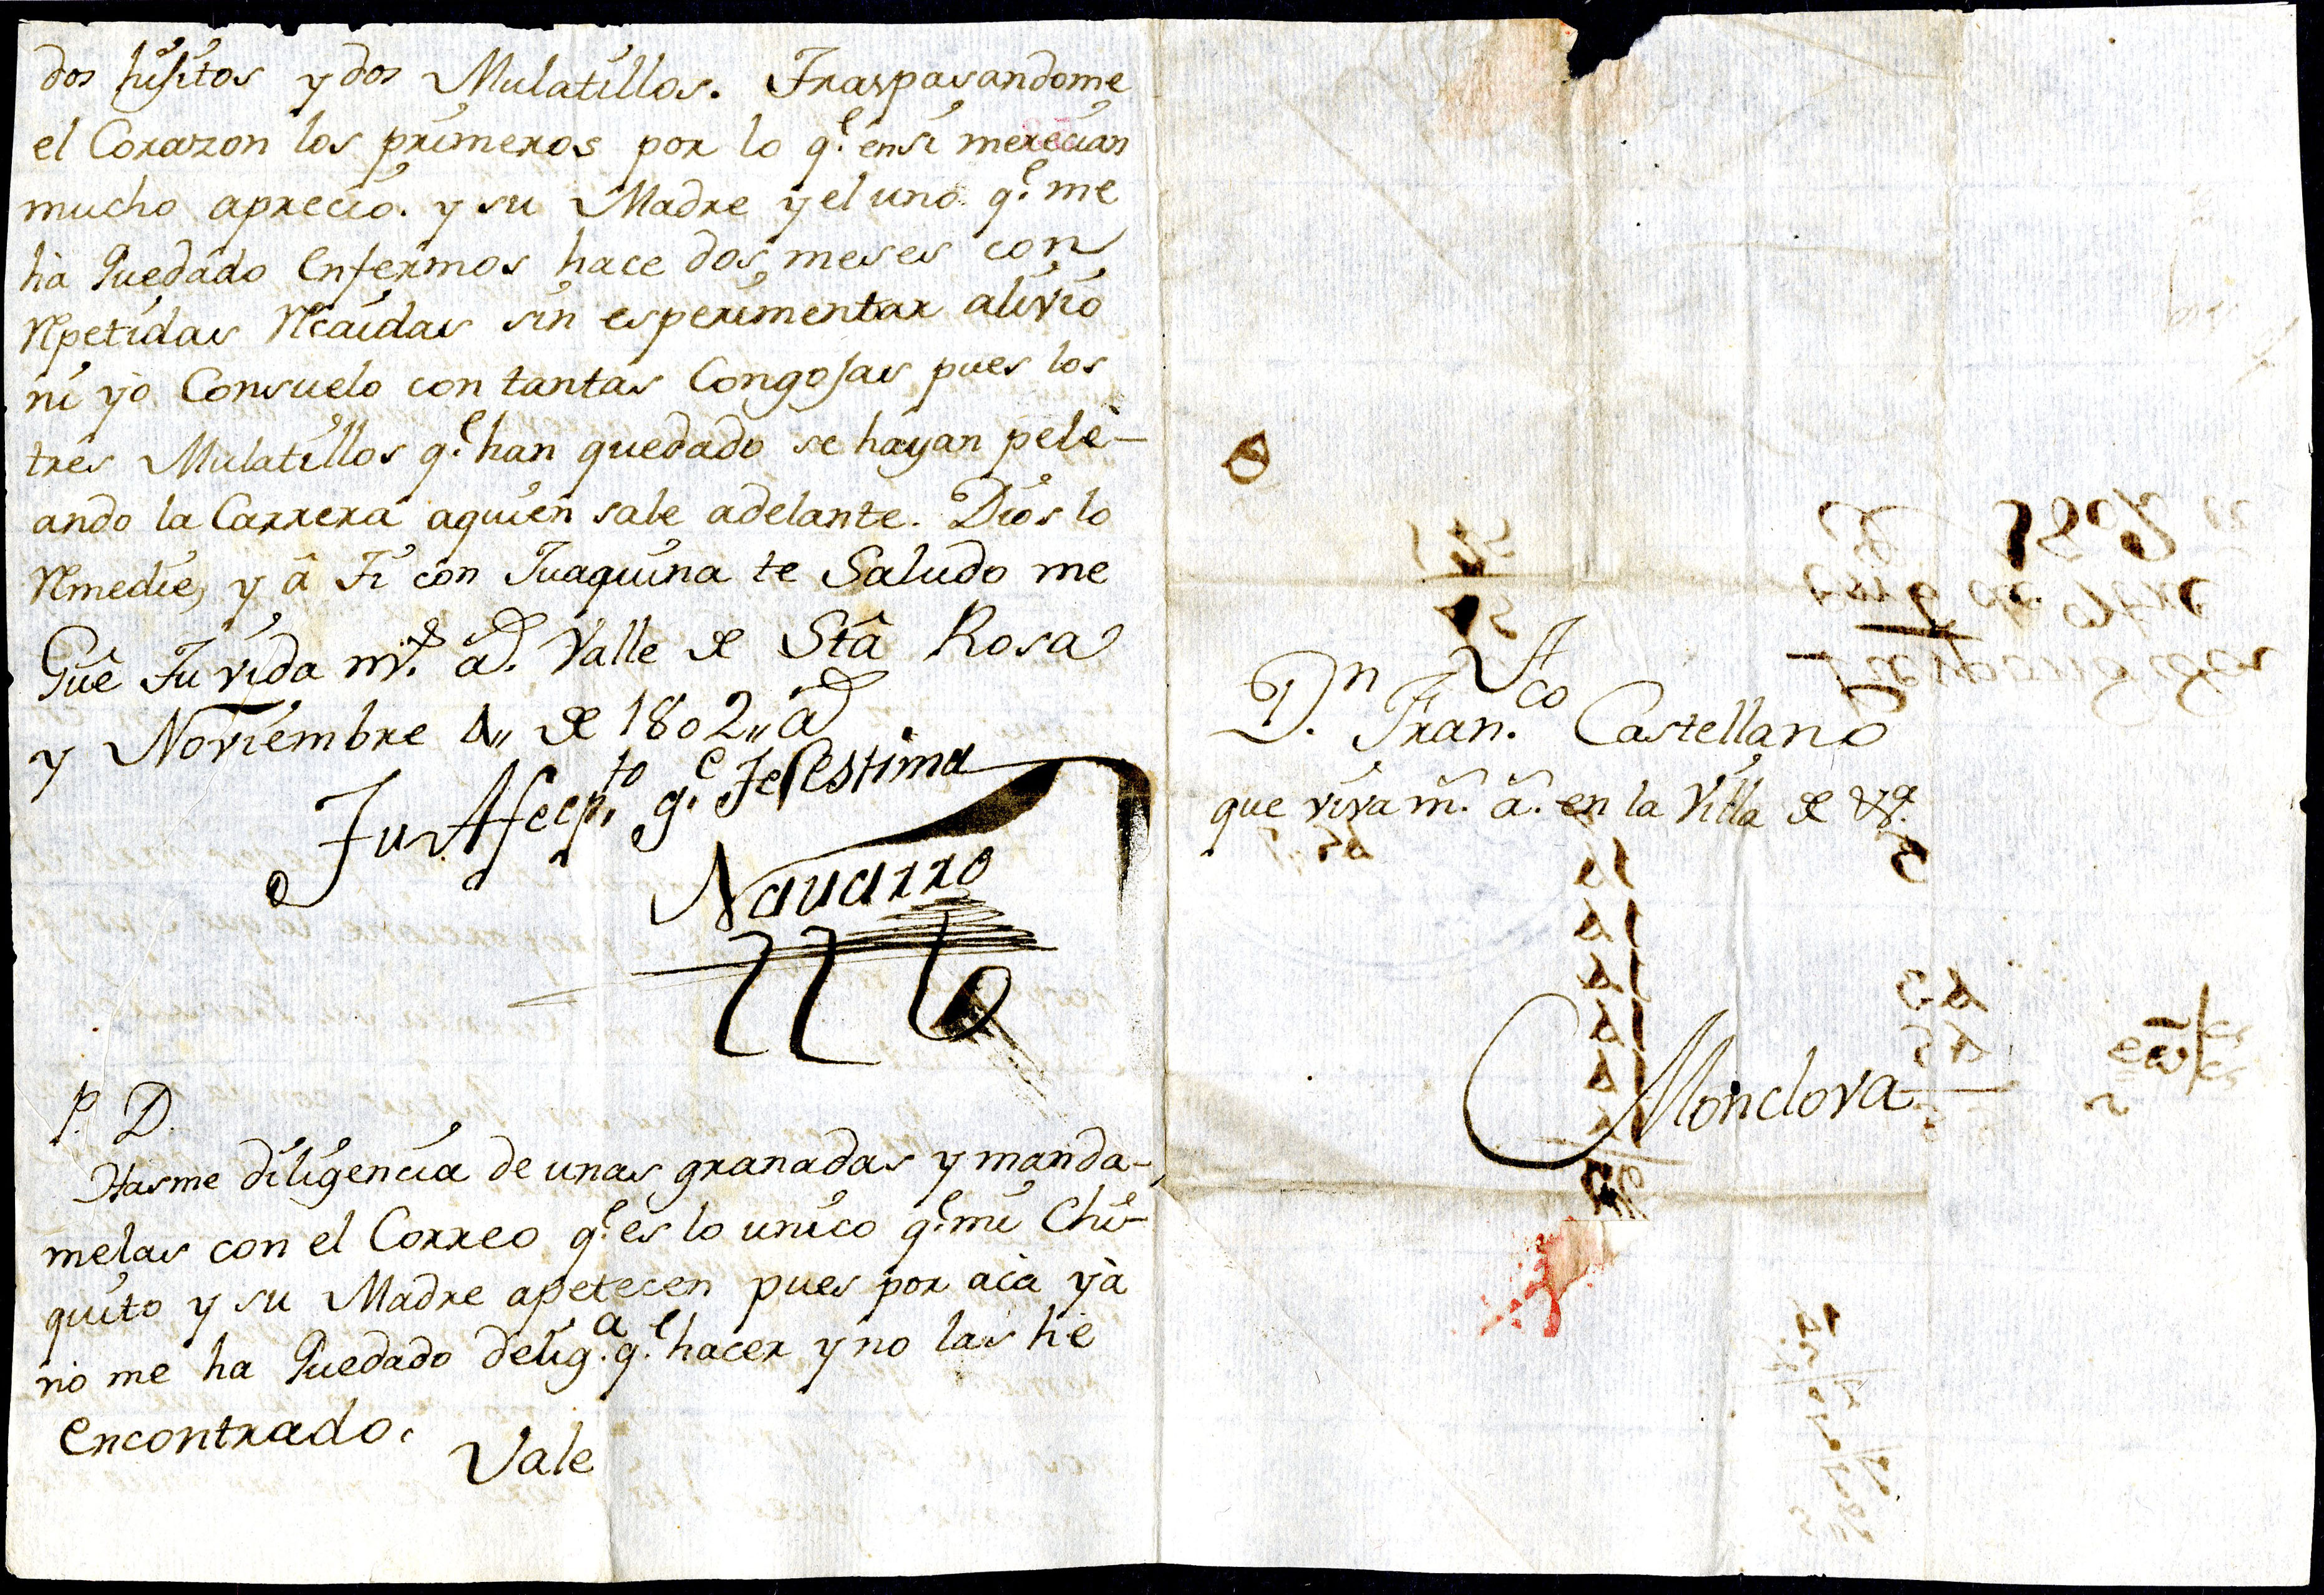 dos hijitos y dos Mulatillos. Traspasandome
el Corazon los primeros por lo q.e ensi merecian
mucho aprecio. y su Madre y el uno q.e me
hà Quedado Enfermos hace dos meses con
Repetidas Recaidas sin esperimentar alivio
ni yò Consuelo con tantas Congojas pues los
tres Mulatillos q.e han quedado se hayan pele-
ando la Carrera aquien sale adelante. Dios lo
Remedie, y â Ti con Juaquina te Saludo me
Guê Tu vida m.s a.s Valle de Stâ Rosa
y Noviembre 4,, de 1802,, a.s
Tu Afecp.to q.e Te Estima
Navarro
P. D.
Hasme diligencia de unas granadas y manda-
melas con el Correo q.e es lo unico q.e mi Chi-
quito y su Madre apetecen pues por acà yà
no me ha Quedado delig.a q.e hacer y no las hè
encontrado.
Vale
A
D.n Fran.co Castellano
que viva m.s a.s en la Villa de
Monclova